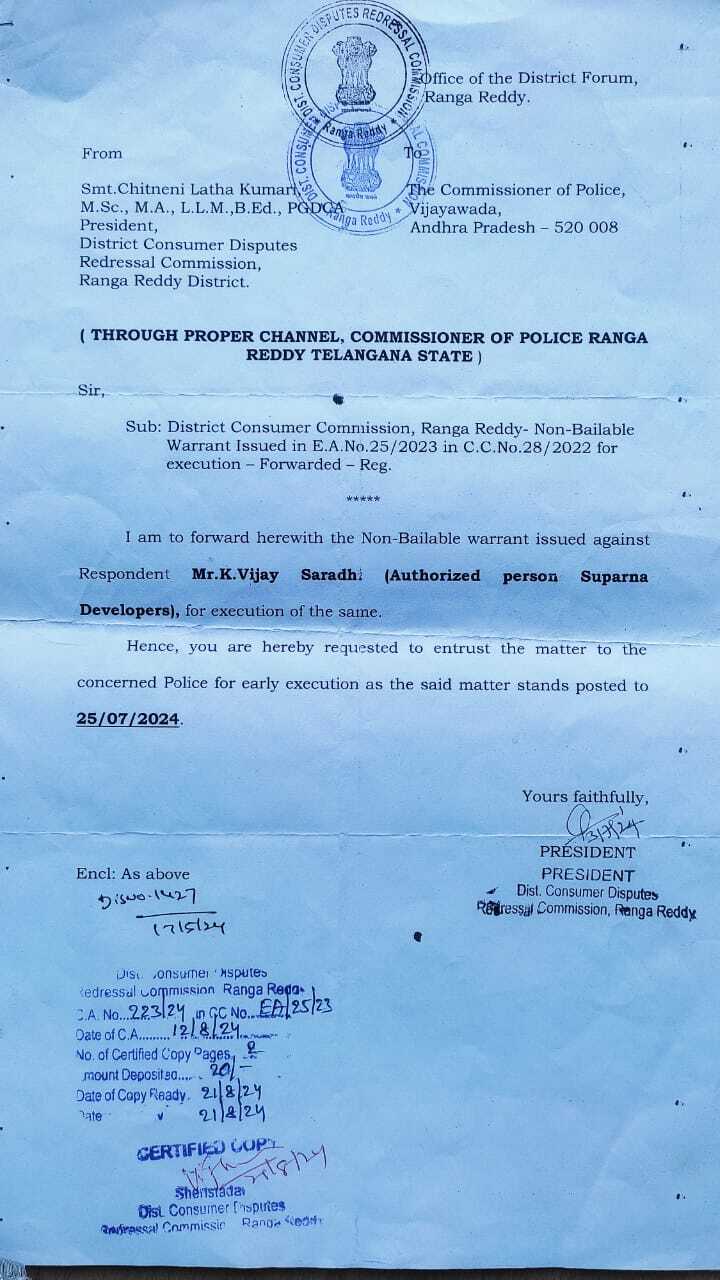 DIST. CONSUMER DISPUTES REDRESSAL COMMISSION
* Ranga Reddy *
Ranga Reddy *
Office of the District Forum,
Ranga Reddy.
From
To
Smt.Chitneni Latha Kumari
M.Sc., M.A., L.L.M.,B.Ed., PGDCA
President,
District Consumer Disputes
Redressal Commission,
Ranga Reddy District.
The Commissioner of Police,
Vijayawada,
Andhra Pradesh – 520 008
( THROUGH PROPER CHANNEL, COMMISSIONER OF POLICE RANGA
REDDY TELANGANA STATE )
Sir,
Sub: District Consumer Commission, Ranga Reddy- Non-Bailable
Warrant Issued in E.A.No.25/2023 in C.C.No.28/2022 for
execution – Forwarded – Reg.
*****
I am to forward herewith the Non-Bailable warrant issued against
Respondent Mr.K.Vijay Saradhi (Authorized person Suparna
Developers), for execution of the same.
Hence, you are hereby requested to entrust the matter to the
concerned Police for early execution as the said matter stands posted to
25/07/2024.
Yours faithfully,
3/7/24
PRESIDENT
PRESIDENT
Dist. Consumer Disputes
Redressal Commission, Ranga Reddy
Encl: As above
Disno.1427
17/5/24
Dist. Consumer Disputes
Redressal Commission Ranga Reddy
C.A. No...223/24 in CC No...EA/25/23
Date of C.A.........12/8/24
No. of Certified Copy Pages
Amount Deposited.... 20/-
Date of Copy Ready. 21/8/24
Date 21/8/24
CERTIFIED COPY
21/8/24
Sheristadar
Dist. Consumer Disputes
Redressal Commission Ranga Reddy